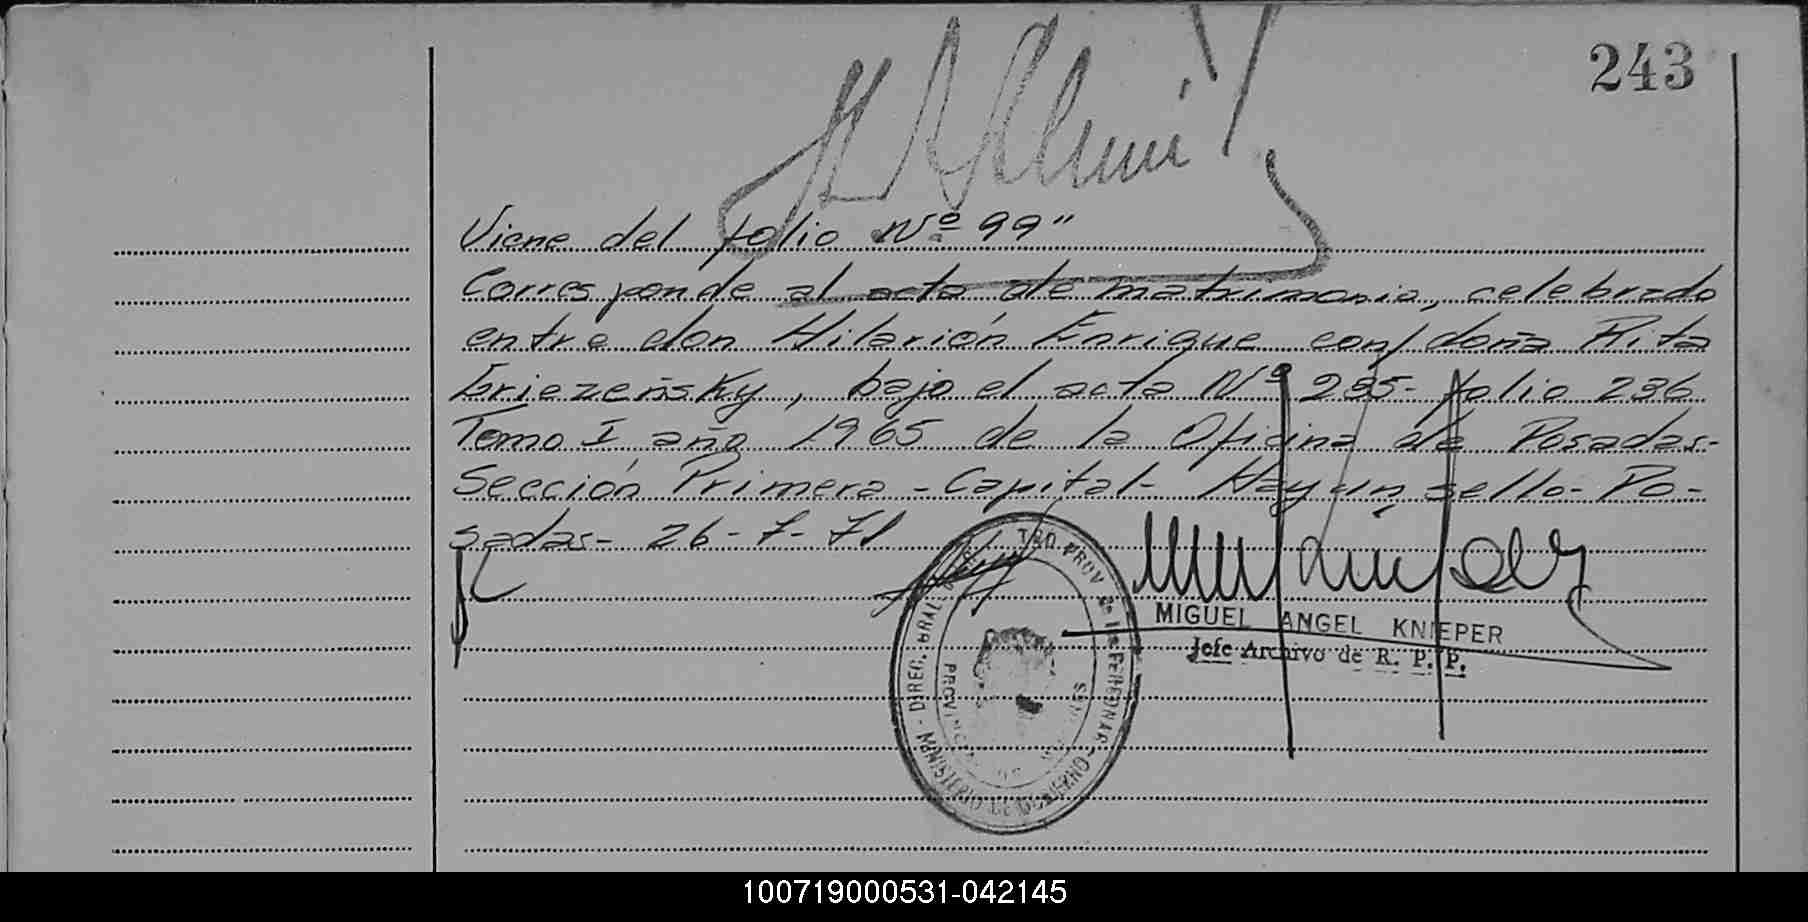 243
Viene del folio Nº 99"
Corresponde al acta de matrimonio, celebrado
entre don Hilarión Enrique con doña Rita
Griezeñsky, bajo el acta Nº 235- folio 236
Tomo I año 1965 de la Oficina de Posadas-
Sección Primera - Capital- Hay un sello- Po-
sadas- 26-7-71
MIGUEL ANGEL KNIEPER
Jefe Archivo de R. P. P.
DIREC. GRAL. PROV. de las PERSONAS - MINISTERIO DE GOBIERNO -
100719000531-042145